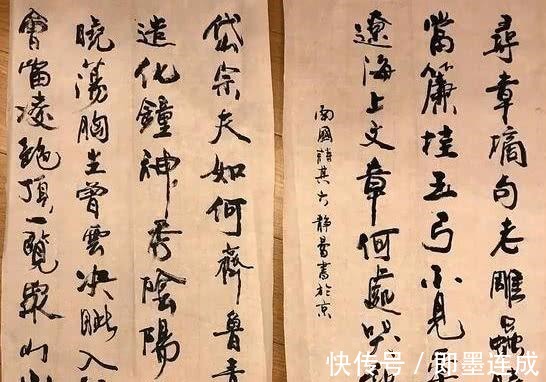 尋章摘句老雕蟲
當簾挂玉弓不見
遼海上文章何處哭
南園詩其六 静書於京
岱宗夫如何齊魯青
造化鐘神秀陰陽
曉蕩胸生曾雲決眥入
會當凌絶頂一覽眾山小
快传号 / 即墨连成